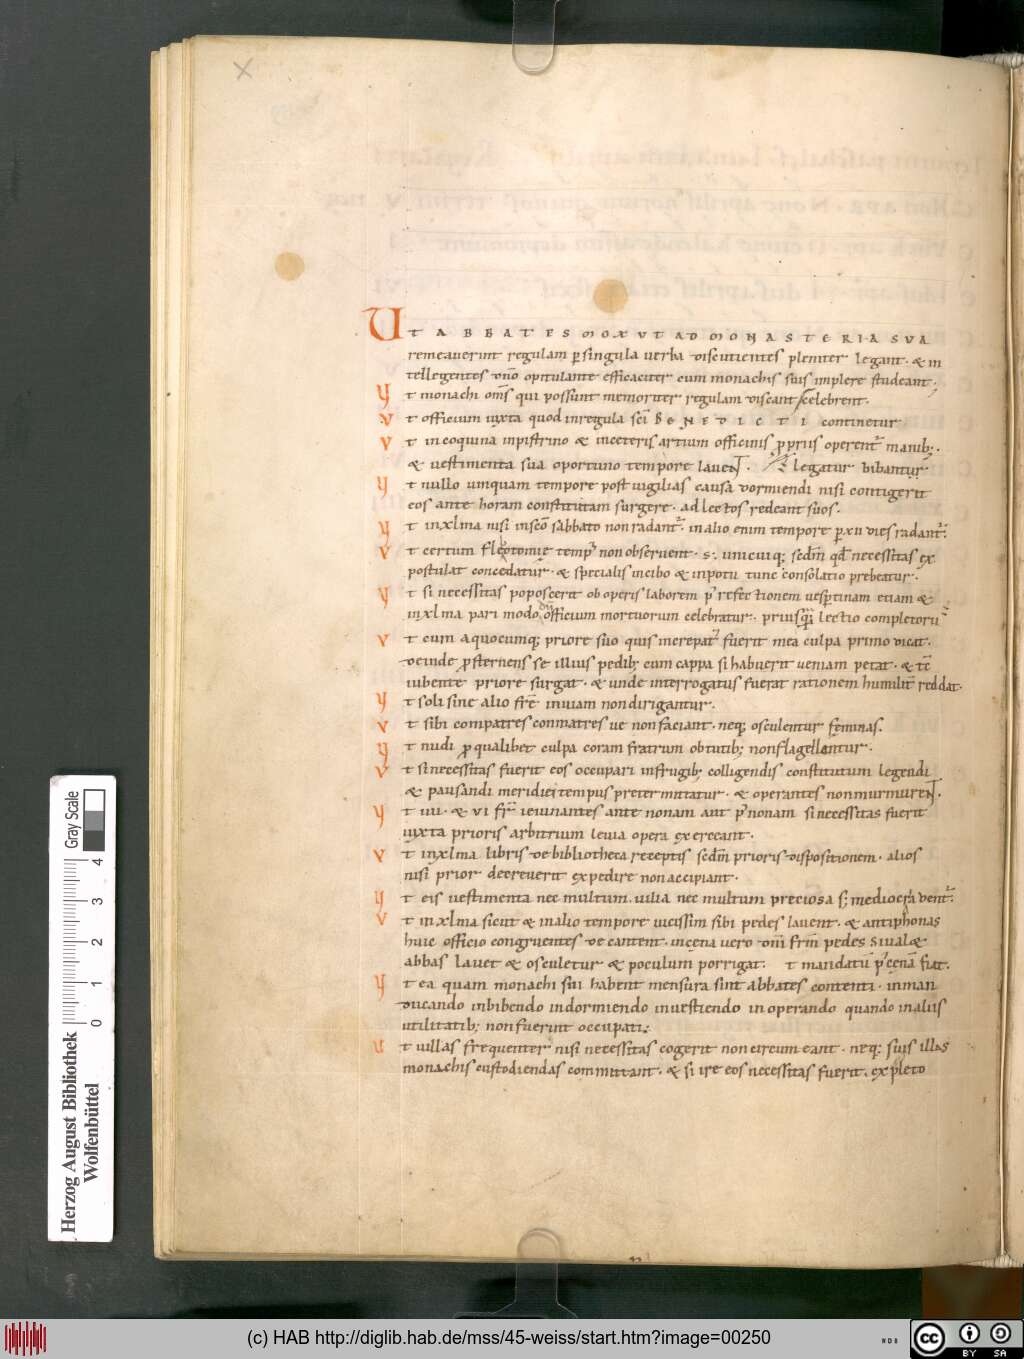 UT ABBATES MOX UT AD MONASTERIA SUA
remeauerint regulam p̲singula uerba discutientes pleniter legant · & in
tellegentes dn̄o opitulante efficaciter cum monachis suis implere studeant;
Vt monachi om̄s qui possunt memoriter regulam discant celebrent.
Vt officium iuxta quod inregula sc̄i BENEDICTI continetur
Vt incoquina inpistrino & inceteris artium officinis p̲priis operent᷑ manib;.
& uestimenta sua oportuno tempore lauent. legatur bibantur
Vt nullo umquam tempore post uigilias causa dormiendi nisi contigerit
eos ante horam constitutam surgere · ad lectos redeant suos.
Vt inxlma nisi insc̄o sabbato non radant᷑. in alio enim tempore p̲ xii dies radant᷑.
Vt certum fleotomię temp' non obseruent · s. unicuiq; scd̄m qđ necessitas ex
postulat concedatur · & specialis incibo & inpotu tunc consolatio prebeatur.
Vt si necessitas poposcerit ob operis laborem p' refectionem uesp̲tinam etiam &
inxlma pari modo officium mortuorum celebratur · priusquā lectio completorii
Vt cum aquocumq; priore suo quis increpat' fuerit mea culpa primo dicat.
deinde p̲sternens se illius pedib; cum cappa si habuerit ueniam petat · & tc̄
iubente priore surgat · & unde interrogatus fuerat rationem humilit̄ reddat.
Vt soli sine alio fr̄e inuiam non dirigantur.
Vt sibi compatres conmatres ue non faciant · neq; osculentur feminas.
Vt nudi p̲ qualibet culpa coram fratrum obtutib; non flagellentur.
Vt si necessitas fuerit eos occupari infrugib; colligendis constitutum legendi
& pausandi meridiei tempus pretermittatur · & operantes non murmurent.
Vt iiii · & vi fr̄ ieiunantes ante nonam aut p' nonam si necessitas fuerit
iuxta prioris arbitrium leuia opera exerceant.
Vt inxlma libris de bibliotheca receptis scd̄m prioris dispositionem · alios
nisi prior decreuerit expedire non accipiant.
Vt eis uestimenta nec multum uilia nec multum preciosa s; mediocria dent᷑.
Vt in xlma sicut & in alio tempore uicissim sibi pedes lauent · & antiphonas
huic officio congruentes decantent · incena uero dn̄i fr̄m pedes si ual&
abbas lauet & osculetur & poculum porrigat. Vt mandatū p' cenā fiat.
Vt ea quam monachi sui habent mensura sint abbates contenti · in man
ducando inbibendo in dormiendo inuestiendo in operando quando in aliis
utilitatib; non fuerint occupati.
Vt uillas frequenter nisi necessitas cogerit non circumeant · neq; suis illas
monachis custodiendas committant · & si ire eos necessitas fuerit · expleto
Herzog August Bibliothek
Wolfenbüttel
0 1 2 3 4
Gray Scale
(c) HAB http://diglib.hab.de/mss/45-weiss/start.htm?image=00250
cc BY SA